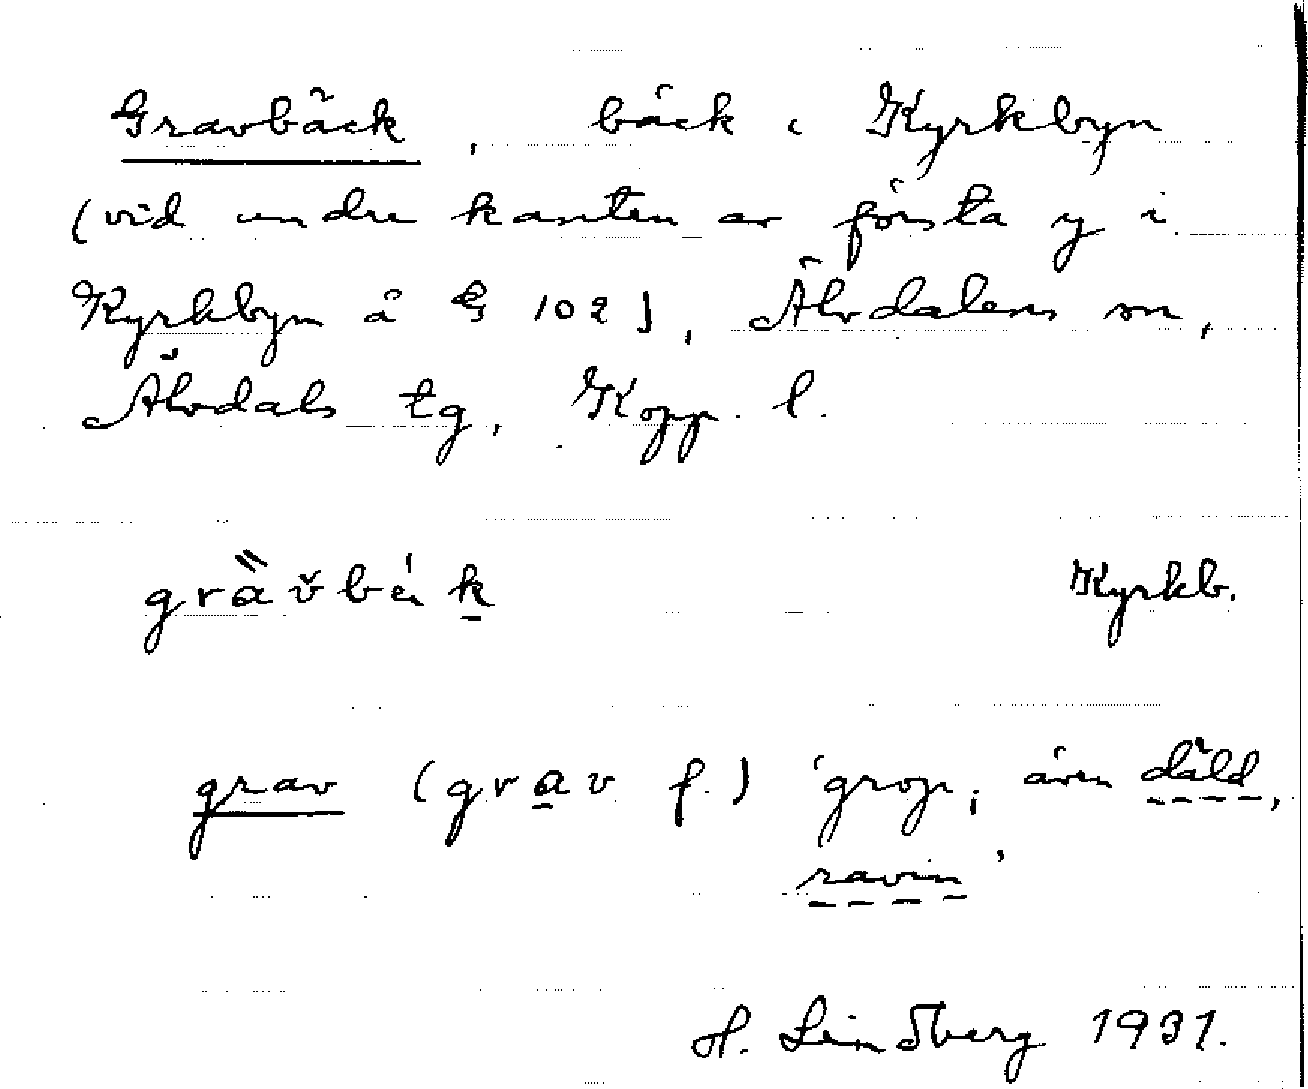 Gravbäck, bäck i Kyrkbyn
(vid undre kanten av första y i
Kyrkbyn å G 102), Älvdalens sn,
Älvdals tg, Kopp. l.
grav̌bäk Kyrkb.
grav (grav f.) 'grop; även däld,
ravin'
H. Lindberg 1931.